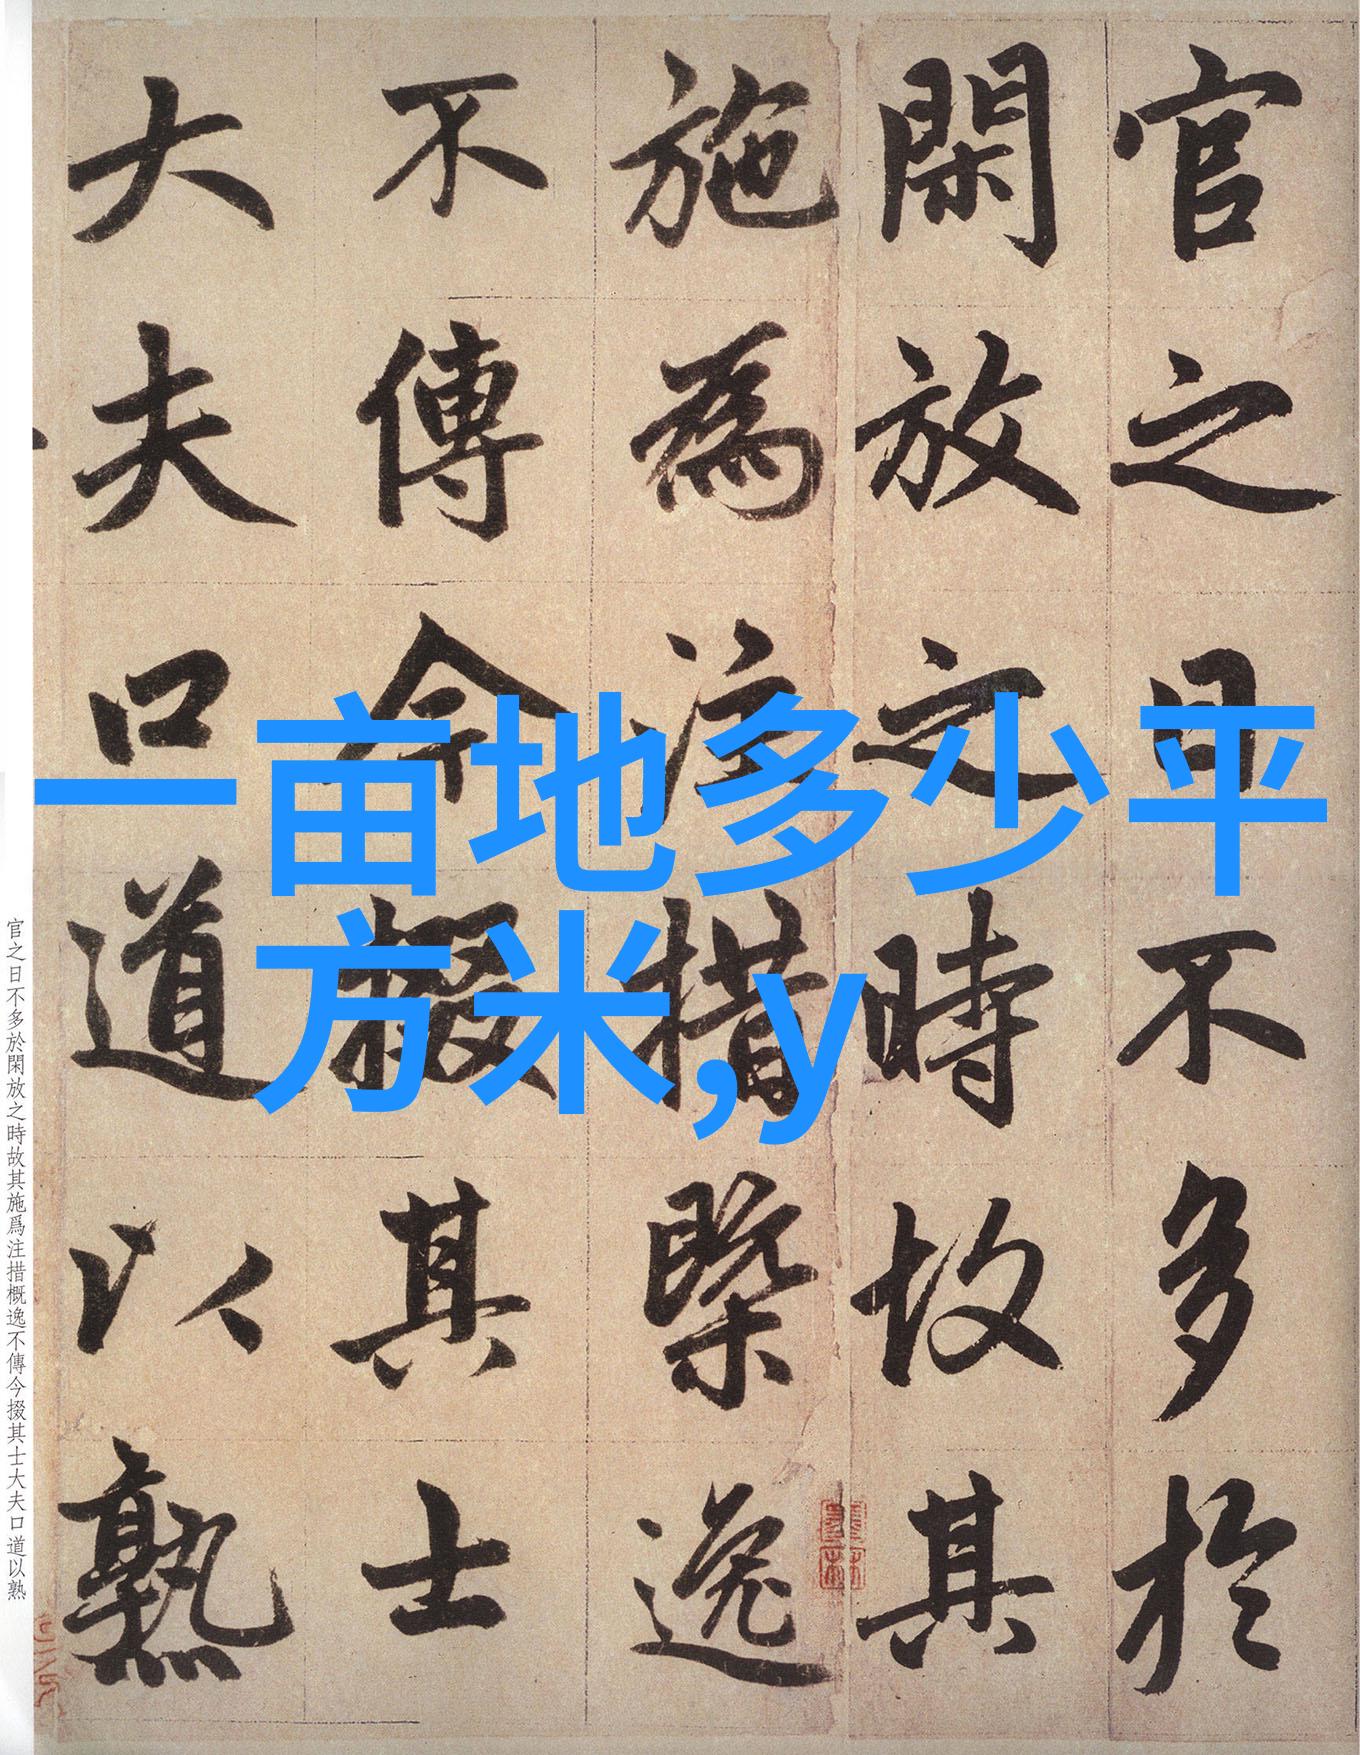 官之日不多於
閑放之時故其
施為注措槩逸
不傳今掇其士
大夫口道以熟
一亩地多少平
方米,y
官之日不多於閑放之時故其施爲注措概逸不傳今掇其士大夫口道以熟